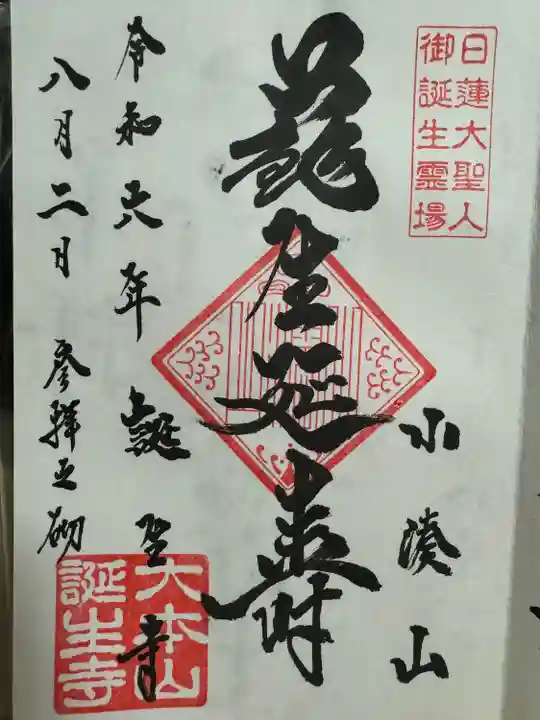 日蓮大聖人
御誕生霊場
小湊山
蘇生延壽
大本山
誕生寺
令和元年 誕生寺
八月二日 参拝之砌